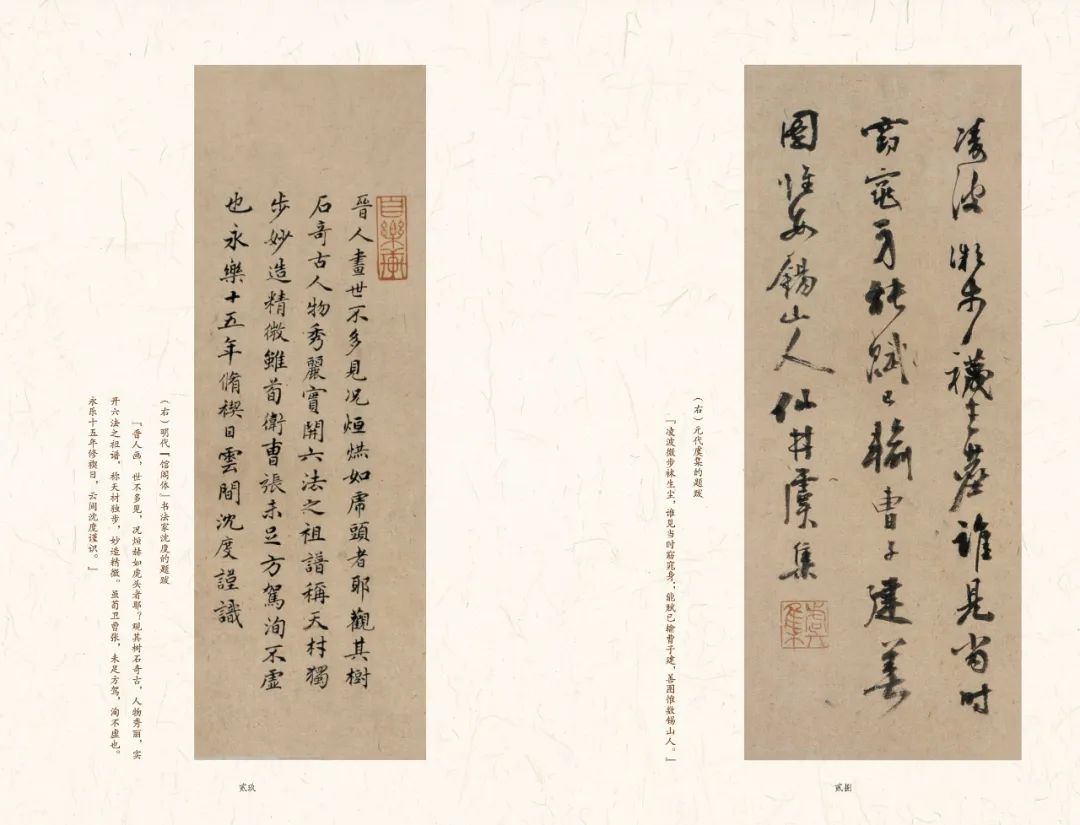 凌波微步襪生塵誰見當時
窈窕身能賦已輸曹子建善
圖惟數錫山人仙井虞集
虞集
（右）元代虞集的题跋
『凌波微步袜生尘，谁见当时窈窕身；能赋已输曹子建，善图惟数锡山人。』
贰捌
自樂軒
晉人畫世不多見况烜烘如虎頭者耶觀其樹
石奇古人物秀麗實開六法之祖譜稱天材獨
步妙造精微雖荀衛曹張未足方駕洵不虛
也永樂十五年脩禊日雲間沈度謹識
（右）明代『馆阁体』书法家沈度的题跋
『晋人画，世不多见，况烜赫如虎头者耶？观其树石奇古，人物秀丽，实
开六法之祖谱，称天材独步，妙造精微。虽荀卫曹张，未足方驾，洵不虚也。
永乐十五年修禊日，云间沈度谨识。』
贰玖